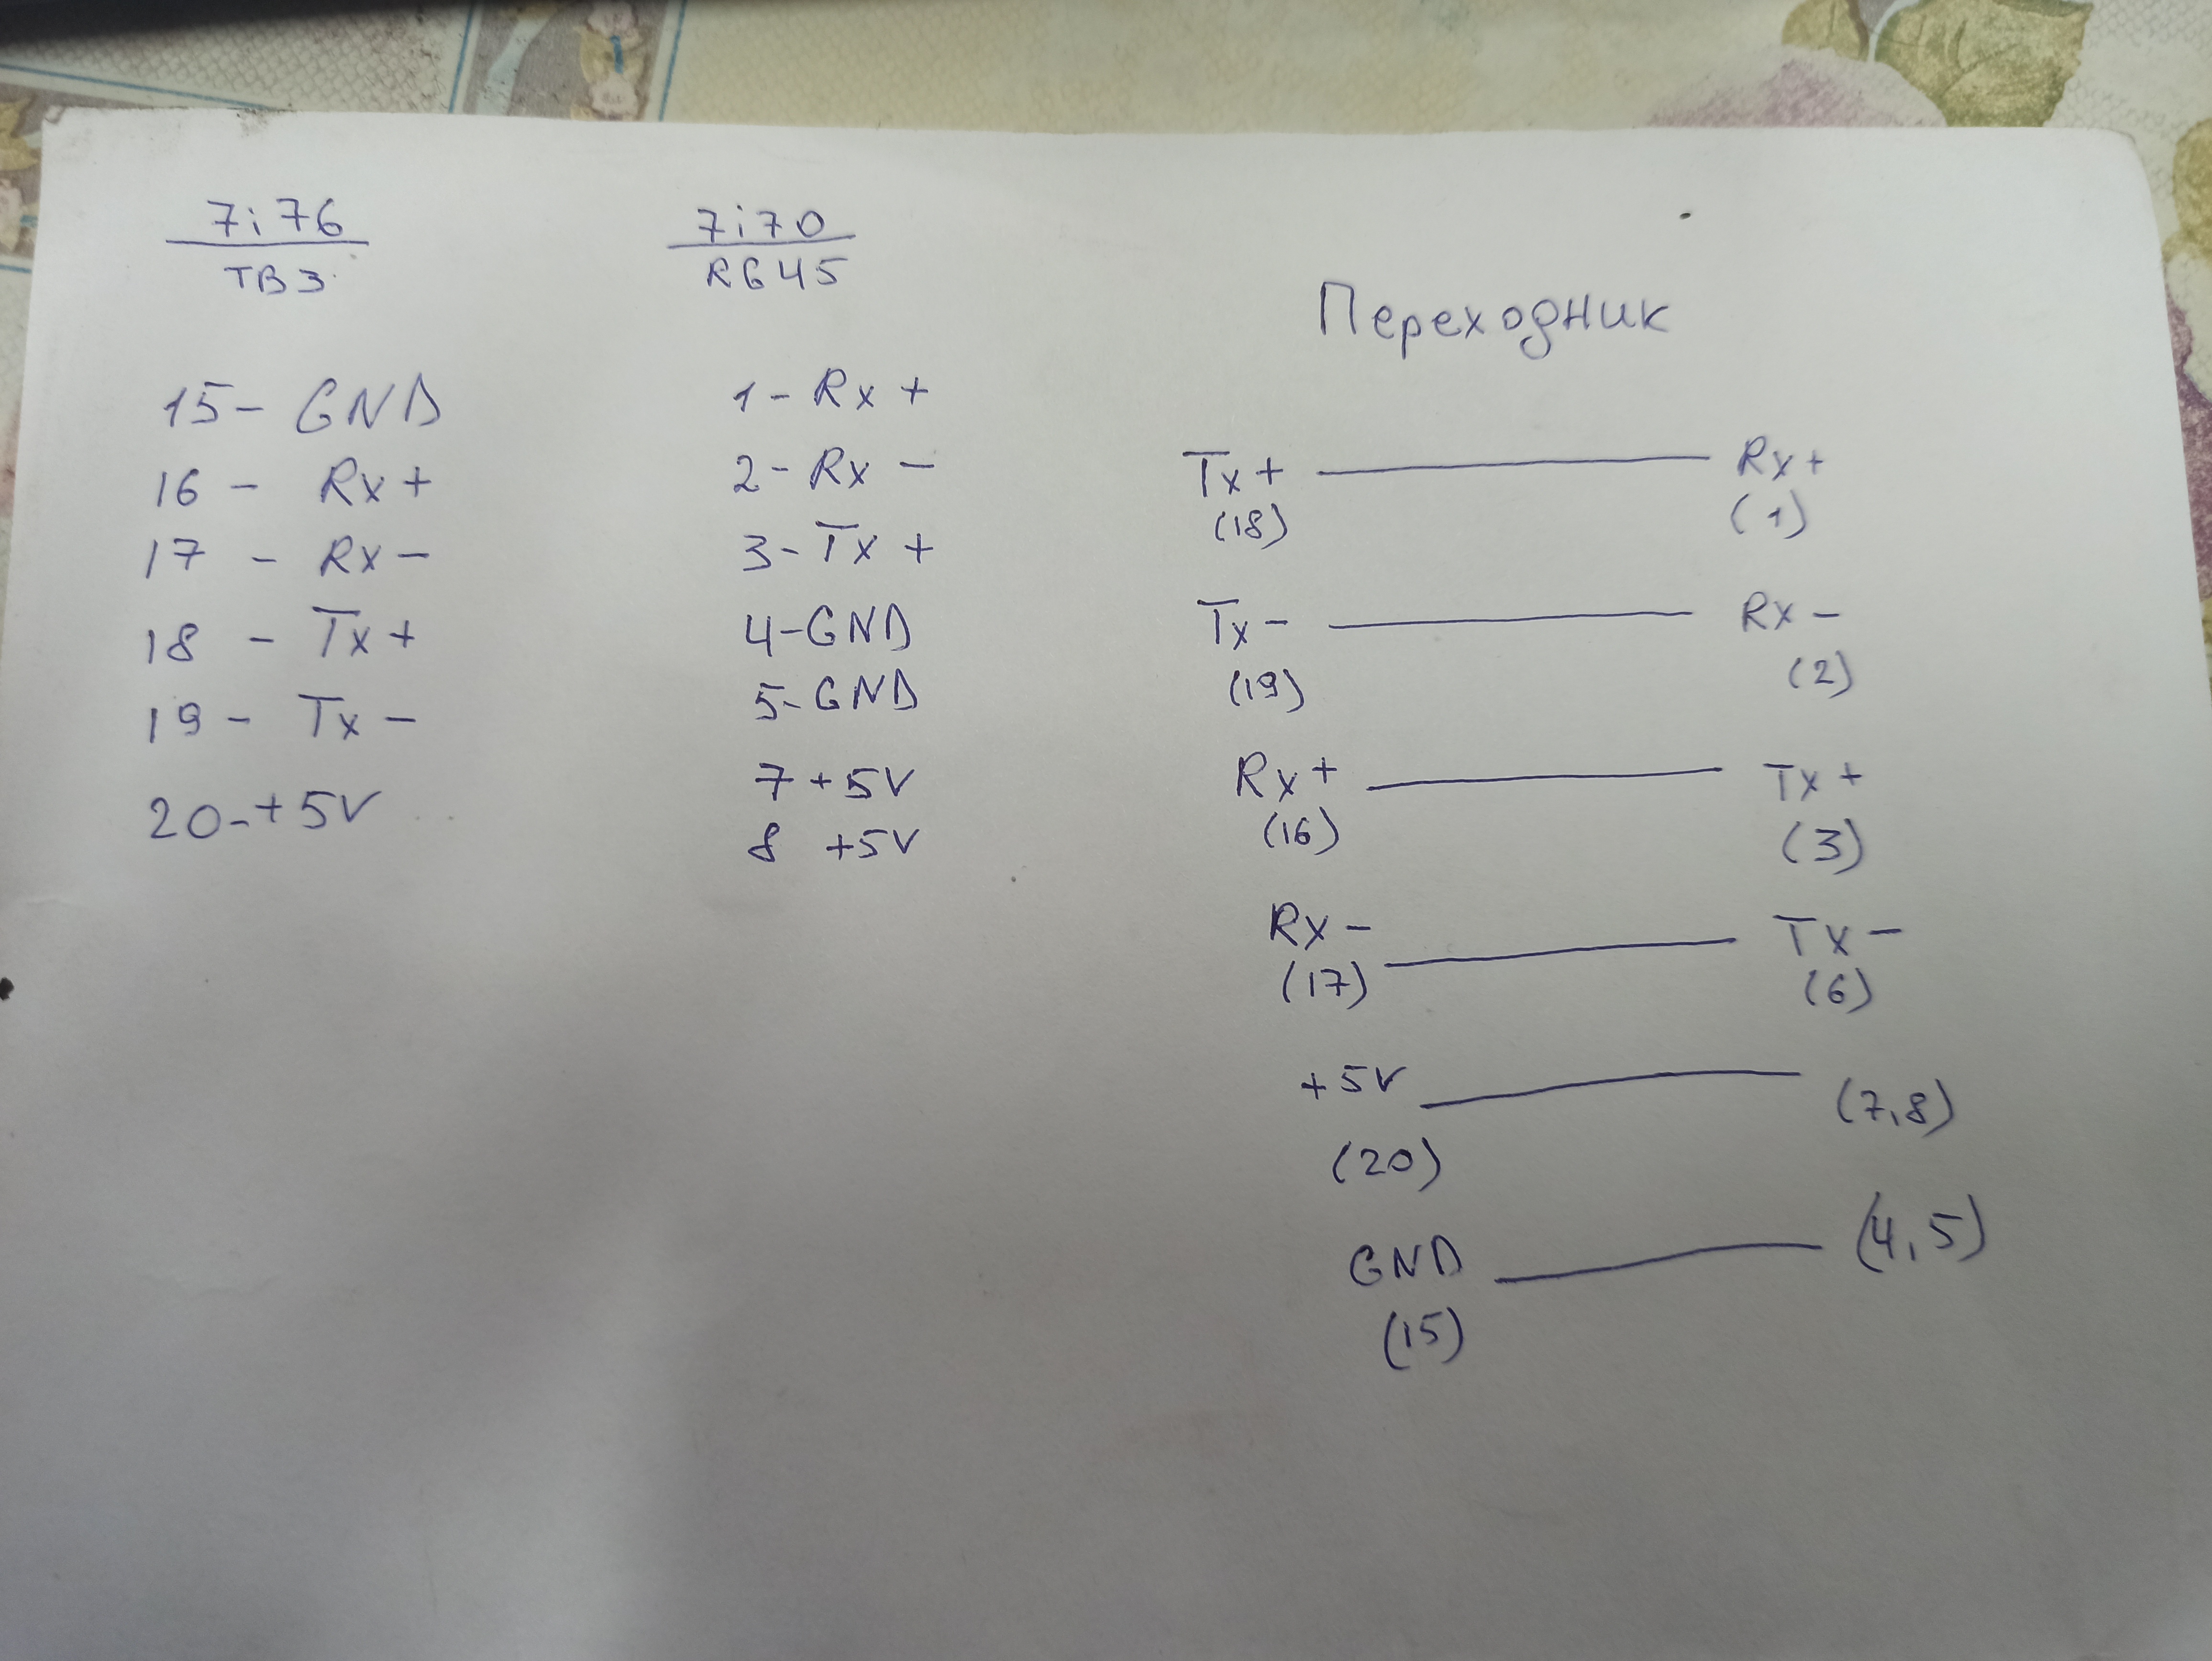 7i76
TB3
15- GND
16 - Rx+
17 - Rx-
18 - Tx+
19 - Tx-
20-+5V
7i70
RG45
1- Rx +
2- Rx -
3- Tx +
4-GND
5-GND
7 +5V
8 +5V
Переходник
Tx+ Rx+
(18) (1)
Tx- Rx-
(19) (2)
Rx+ Tx+
(16) (3)
Rx- Tx-
(17) (6)
+5V (7,8)
(20)
GND (4,5)
(15)